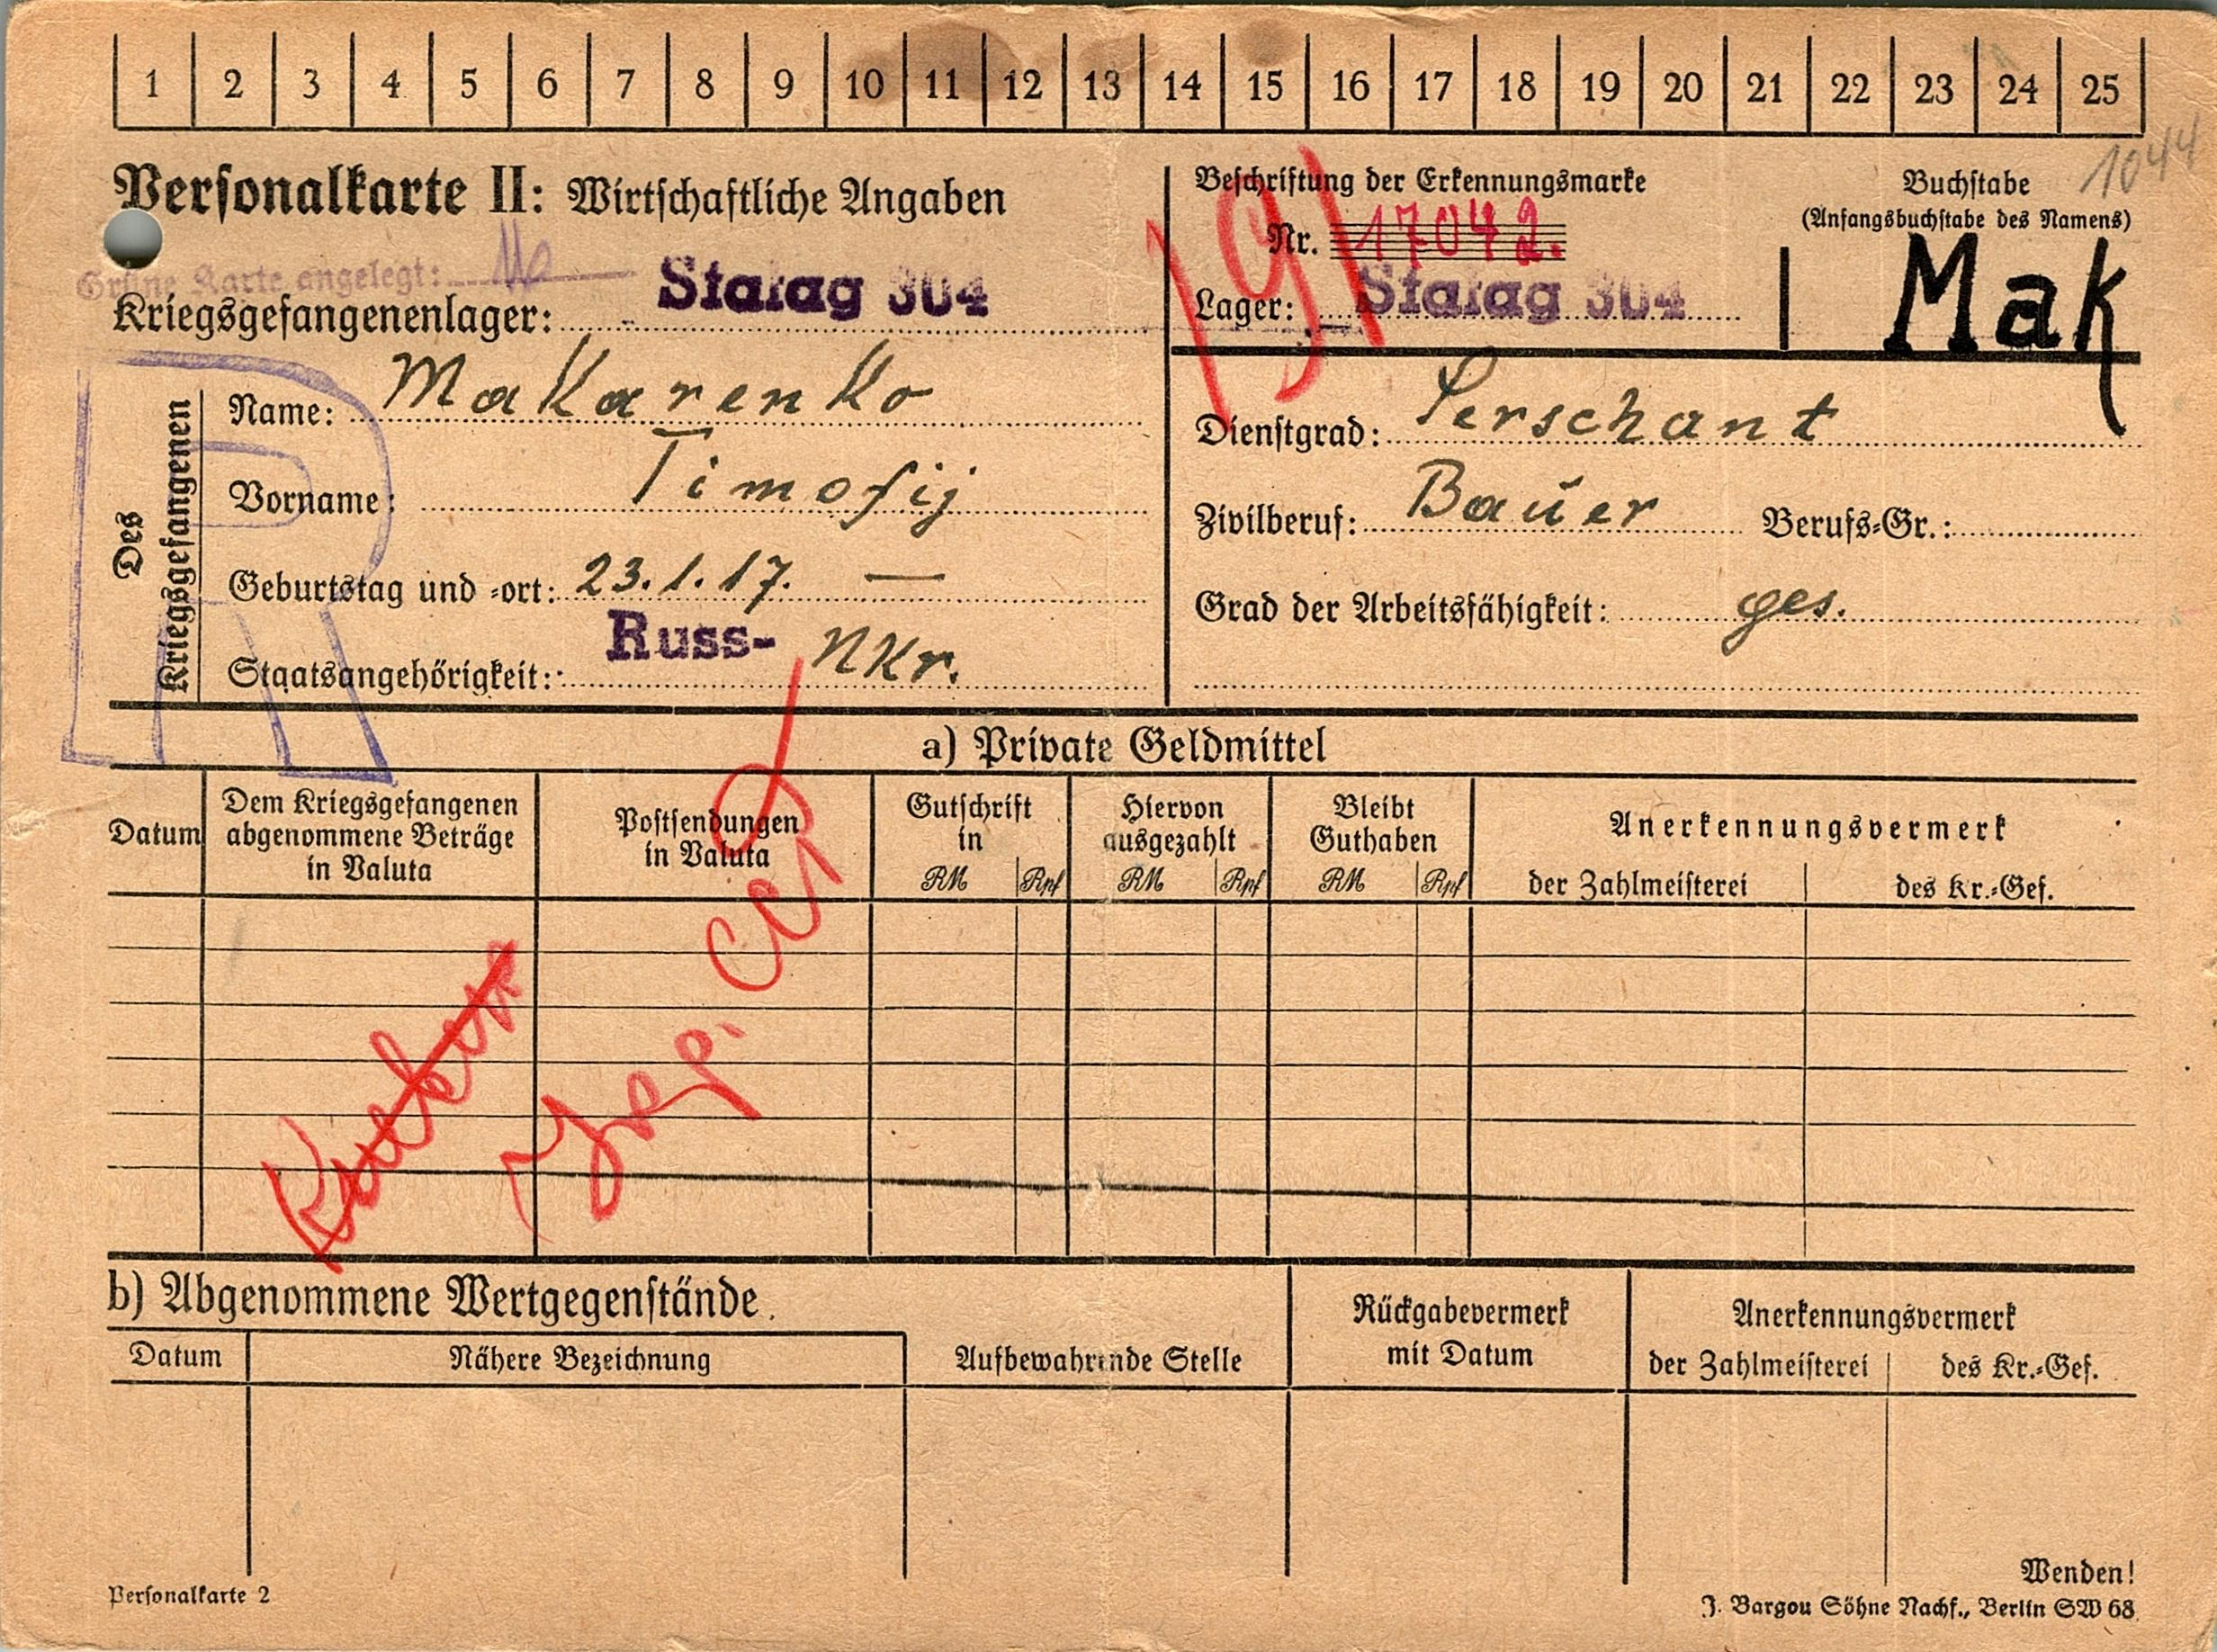 1 2 3 4 5 6 7 8 9 10 11 12 13 14 15 16 17 18 19 20 21 22 23 24 25
1044
Personalkarte II: Wirtschaftliche Angaben
Grüne Karte angelegt:
Kriegsgefangenenlager: Stalag 304
Beschriftung der Erkennungsmarke
Nr. 17042.
Lager: Stalag 304
Buchstabe
(Anfangsbuchstabe des Namens)
Mak
Des Kriegsgefangenen
R
Name: Makarenko
Vorname: Timofij
Geburtstag und -ort: 23.1.17. —
Staatsangehörigkeit: Russ- Nkr.
Dienstgrad: Serschant
Zivilberuf: Bauer Berufs-Gr.:
Grad der Arbeitsfähigkeit: ges.
a) Private Geldmittel
Datum
Dem Kriegsgefangenen
abgenommene Beträge
in Valuta
Postsendungen
in Valuta
Gutschrift
in
RM Rpf
Hiervon
ausgezahlt
RM Rpf
Bleibt
Guthaben
RM Rpf
Anerkennungsvermerk
der Zahlmeisterei des Kr.-Gef.
b) Abgenommene Wertgegenstände.
Datum Nähere Bezeichnung
Aufbewahrende Stelle
Rückgabevermerk
mit Datum
Anerkennungsvermerk
der Zahlmeisterei des Kr.-Gef.
Wenden!
Personalkarte 2
J. Bargou Söhne Nachf., Berlin SW 68